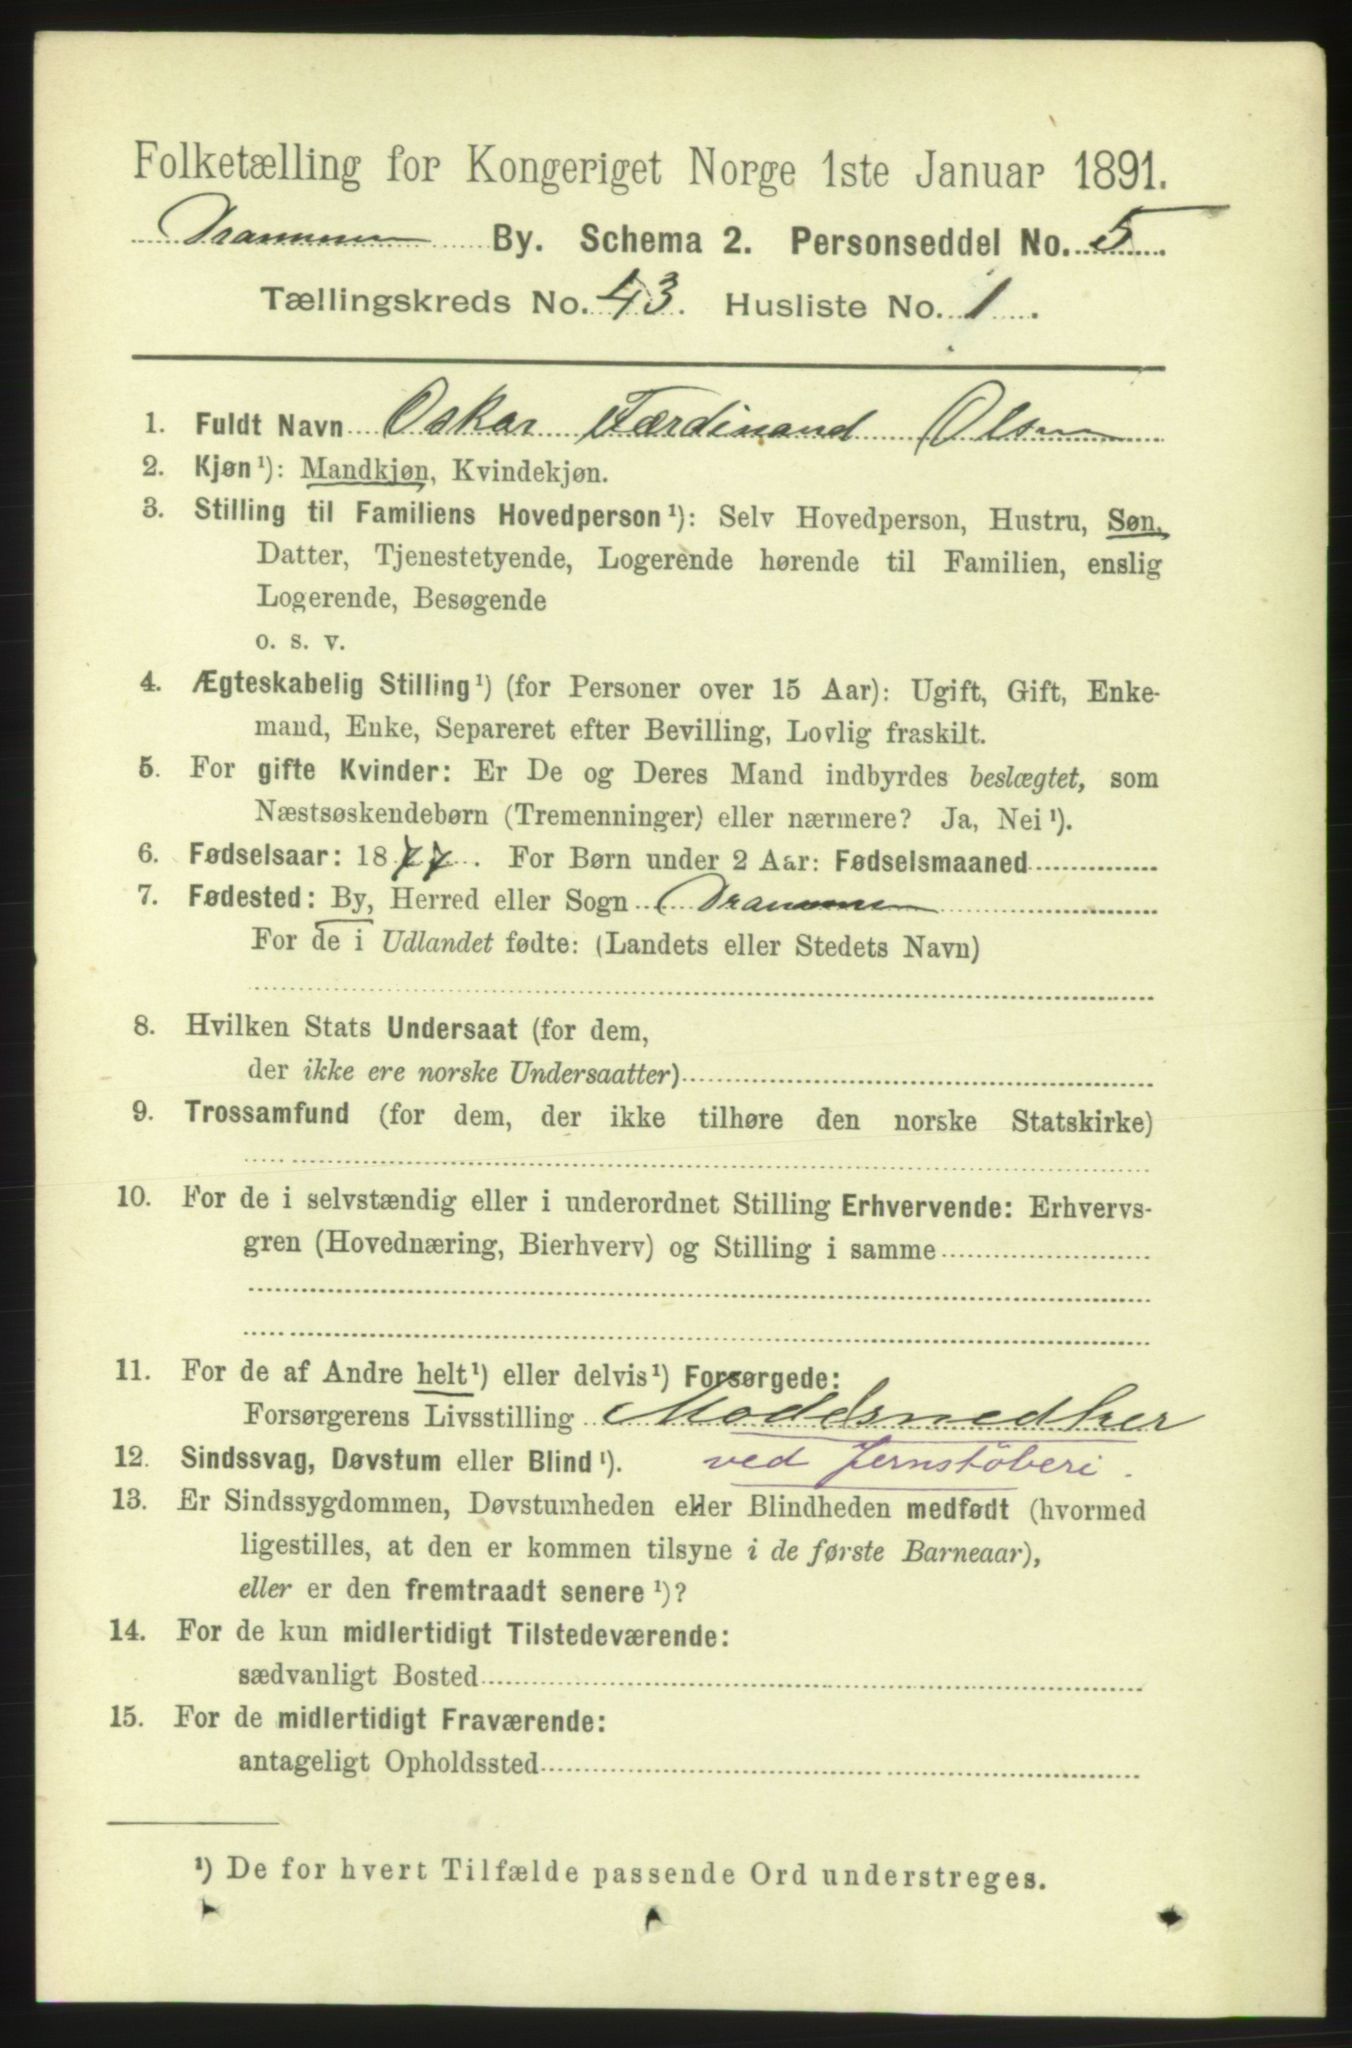 Folketælling for Kongeriget Norge 1ste Januar 1891.
Drammen By. Schema 2. Personseddel No. 5
Tællingskreds No. 43. Husliste No. 1.
1. Fuldt Navn Oskar Færdinand Olsen
2. Kjøn¹): Mandkjøn, Kvindekjøn.
3. Stilling til Familiens Hovedperson¹): Selv Hovedperson, Hustru, Søn,
Datter, Tjenestetyende, Logerende hørende til Familien, enslig
Logerende, Besøgende
o. s. v.
4. Ægteskabelig Stilling¹) (for Personer over 15 Aar): Ugift, Gift, Enke-
mand, Enke, Separeret efter Bevilling, Lovlig fraskilt.
5. For gifte Kvinder: Er De og Deres Mand indbyrdes beslægtet, som
Næstsøskendebørn (Tremenninger) eller nærmere? Ja, Nei¹).
6. Fødselsaar: 1877. For Børn under 2 Aar: Fødselsmaaned
7. Fødested: By, Herred eller Sogn Drammen
For de i Udlandet fødte: (Landets eller Stedets Navn)
8. Hvilken Stats Undersaat (for dem,
der ikke ere norske Undersaatter)
9. Trossamfund (for dem, der ikke tilhøre den norske Statskirke)
10. For de i selvstændig eller i underordnet Stilling Erhvervende: Erhvervs-
gren (Hovednæring, Bierhverv) og Stilling i samme
11. For de af Andre helt¹) eller delvis¹) Forsørgede:
Forsørgerens Livsstilling Moddelsnedker
12. Sindssvag, Døvstum eller Blind¹). ved Jernstøberi.
13. Er Sindssygdommen, Døvstumheden eller Blindheden medfødt (hvormed
ligestilles, at den er kommen tilsyne i de første Barneaar),
eller er den fremtraadt senere¹)?
14. For de kun midlertidigt Tilstedeværende:
sædvanligt Bosted
15. For de midlertidigt Fraværende:
antageligt Opholdssted
¹) De for hvert Tilfælde passende Ord understreges.